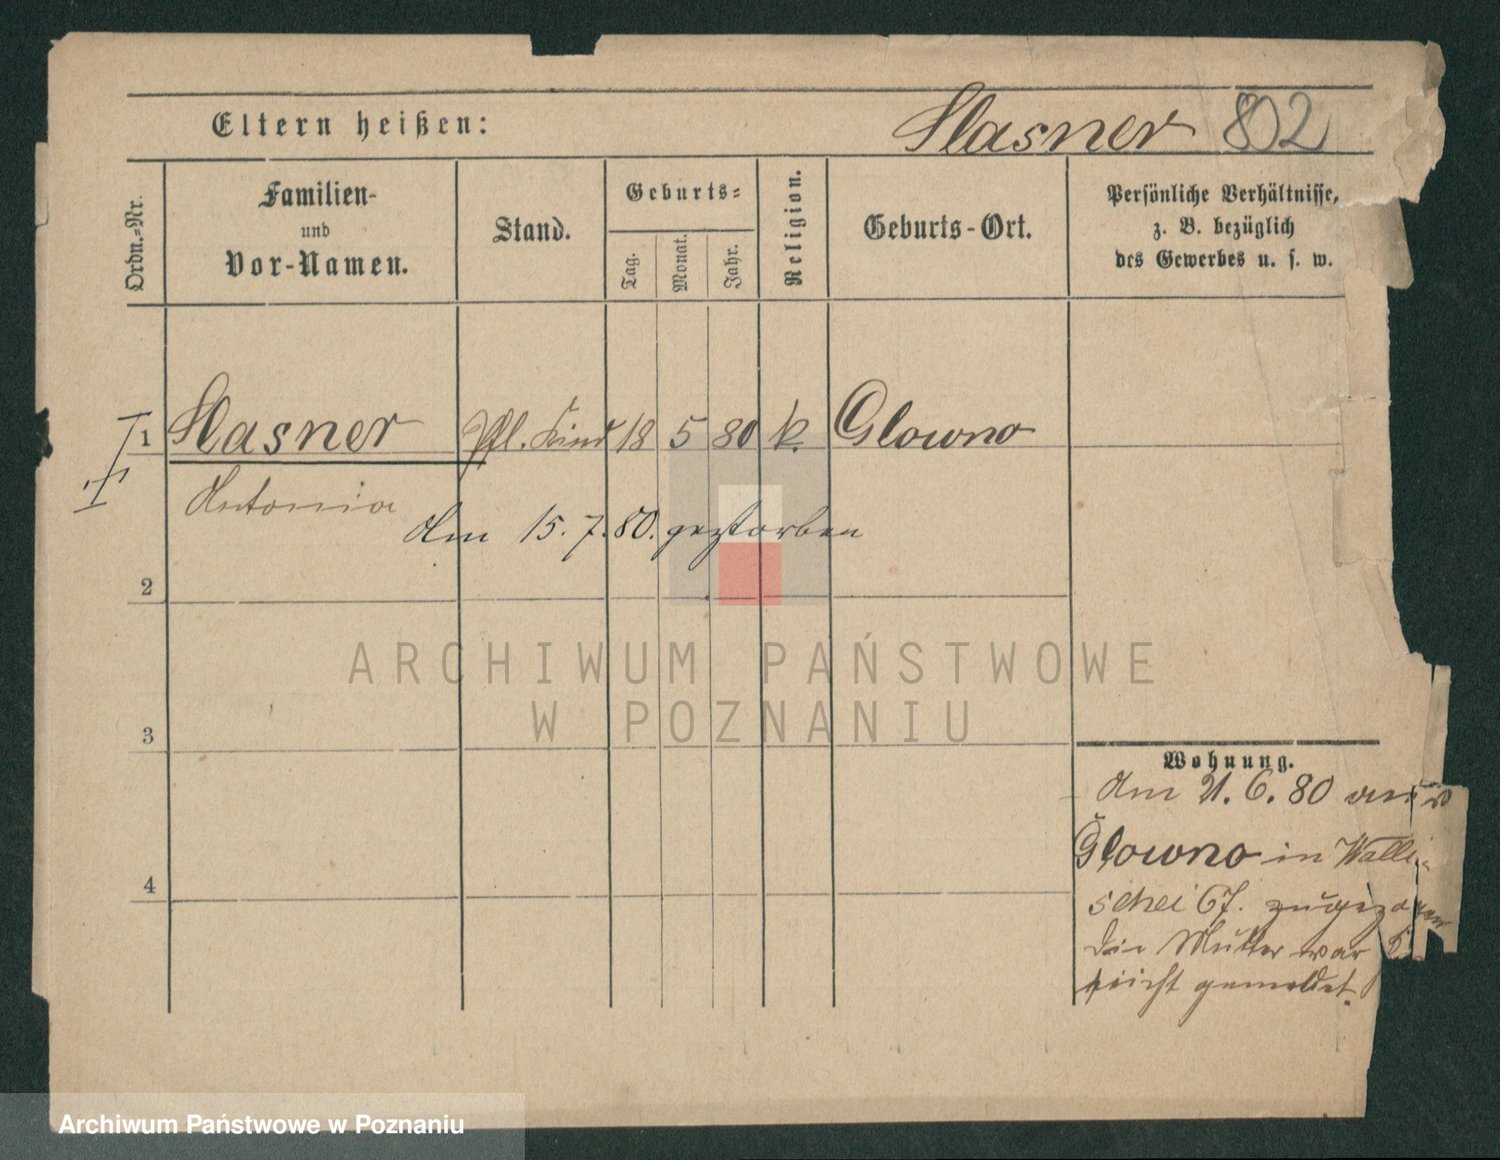 Eltern heißen:
Hasner 802
Ordn.-Nr.
Familien-
und
Vor-Namen.
Stand.
Geburts-
Tag.
Monat.
Jahr.
Religion.
Geburts-Ort.
Persönliche Verhältnisse,
z. B. bezüglich
des Gewerbes u. s. w.
1 Hasner Pfl. Kind 18 5 80 k. Glowno
Antonia
Am 15. 7. 80. gestorben
2
3
4
ARCHIWUM PAŃSTWOWE
W POZNANIU
Wohnung.
Am 21. 6. 80 aus
Glowno in Walli-
schei 67. zugezogen
Die Mutter war
nicht gemeldet.
Archiwum Państwowe w Poznaniu